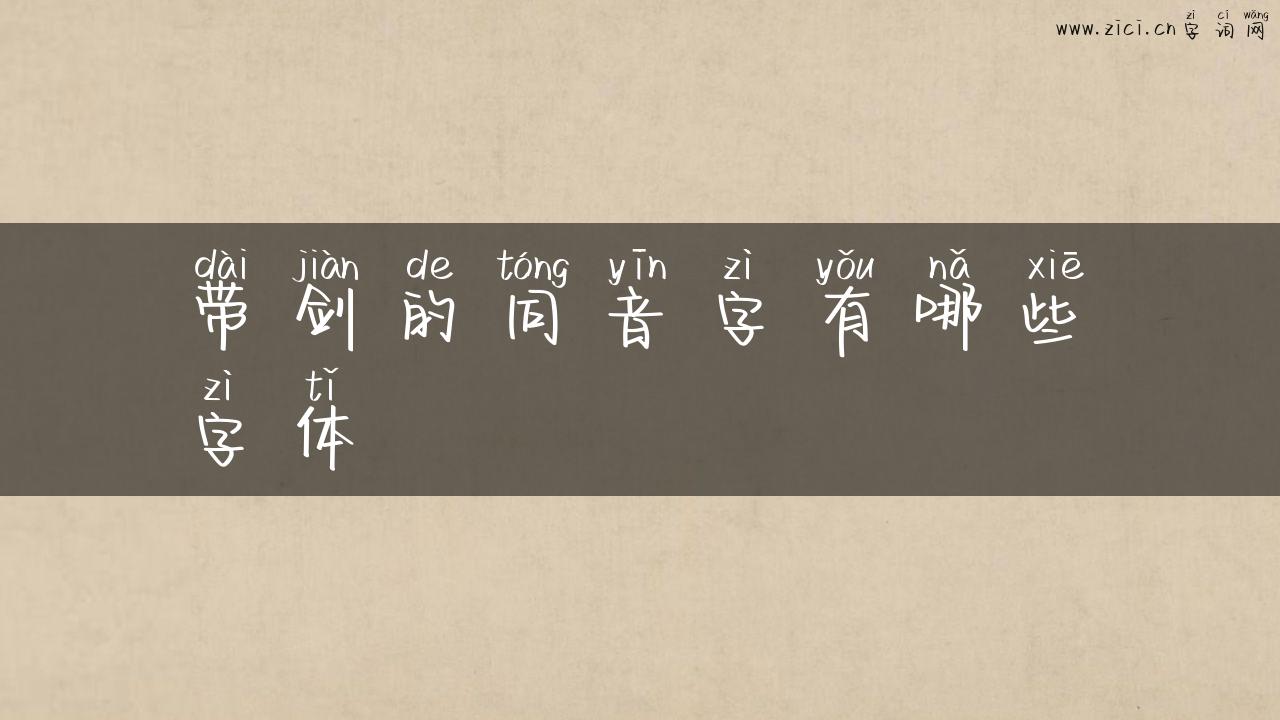 zì cí wǎng
www.zici.cn字词网
dài jiàn de tóng yīn zì yǒu nǎ xiē
带剑的同音字有哪些
zì tǐ
字体